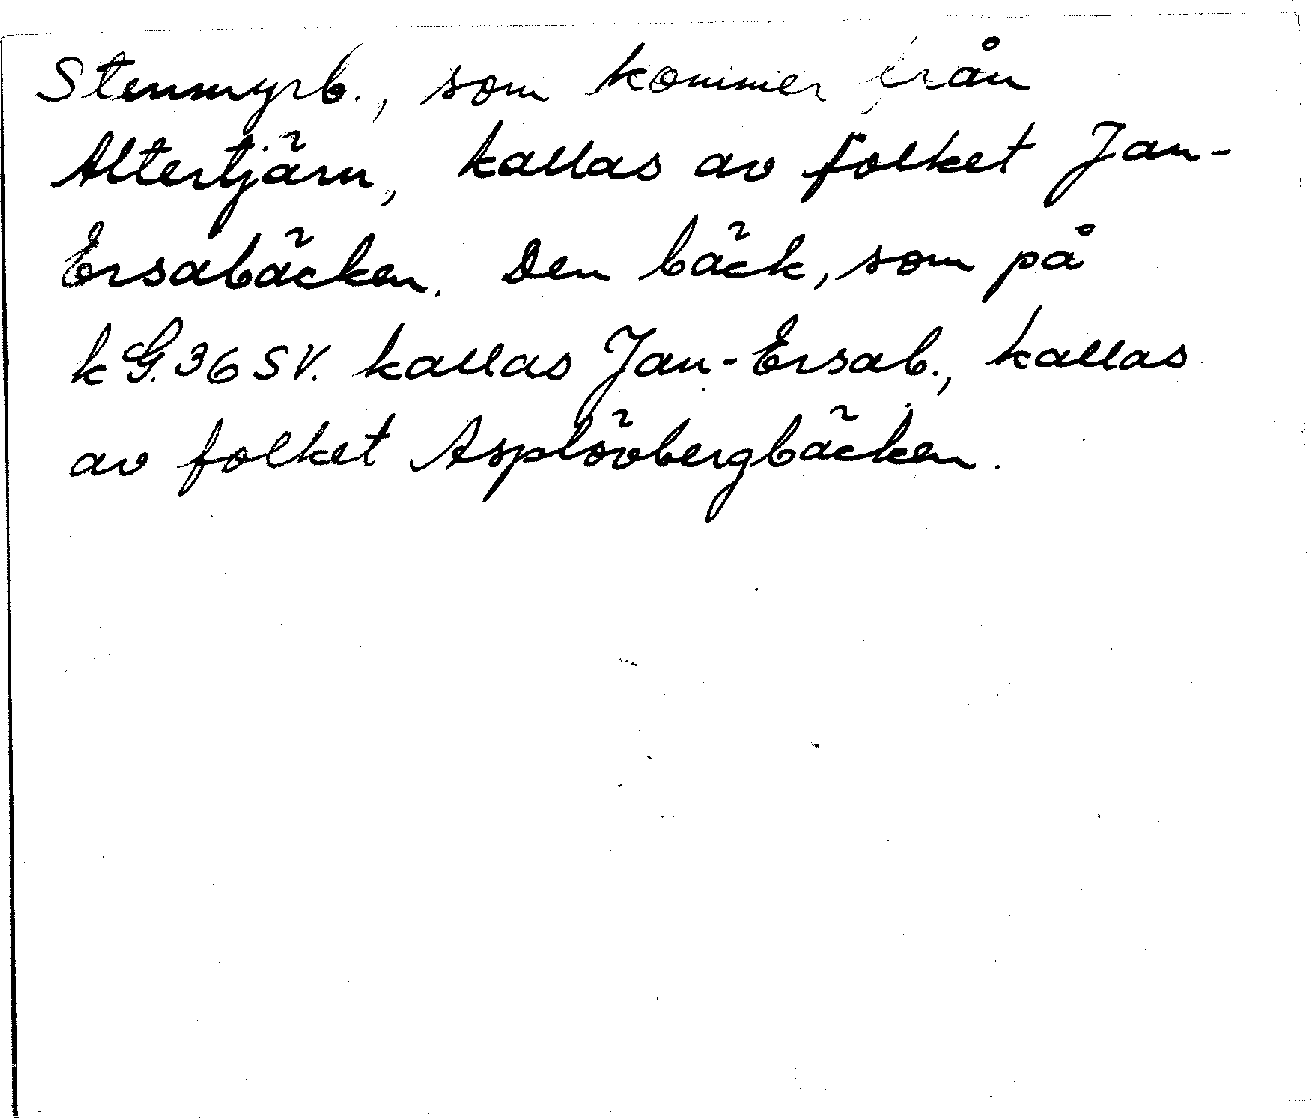 Stenmyrb., som kommer från
Altertjärn, kallas av folket Jan-
Ersabäcken. Den bäck, som på
kG.36 SV. kallas Jan-Ersab., kallas
av folket Asplövbergbäcken.